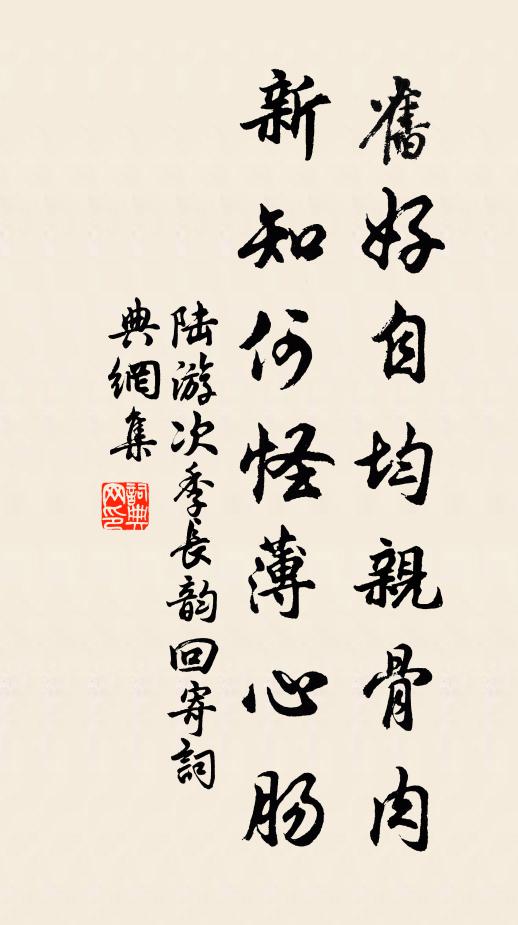 舊好自均親骨肉
新知何怪薄心肠
陆游次季长韵回寄詞
典網集
詞典网印